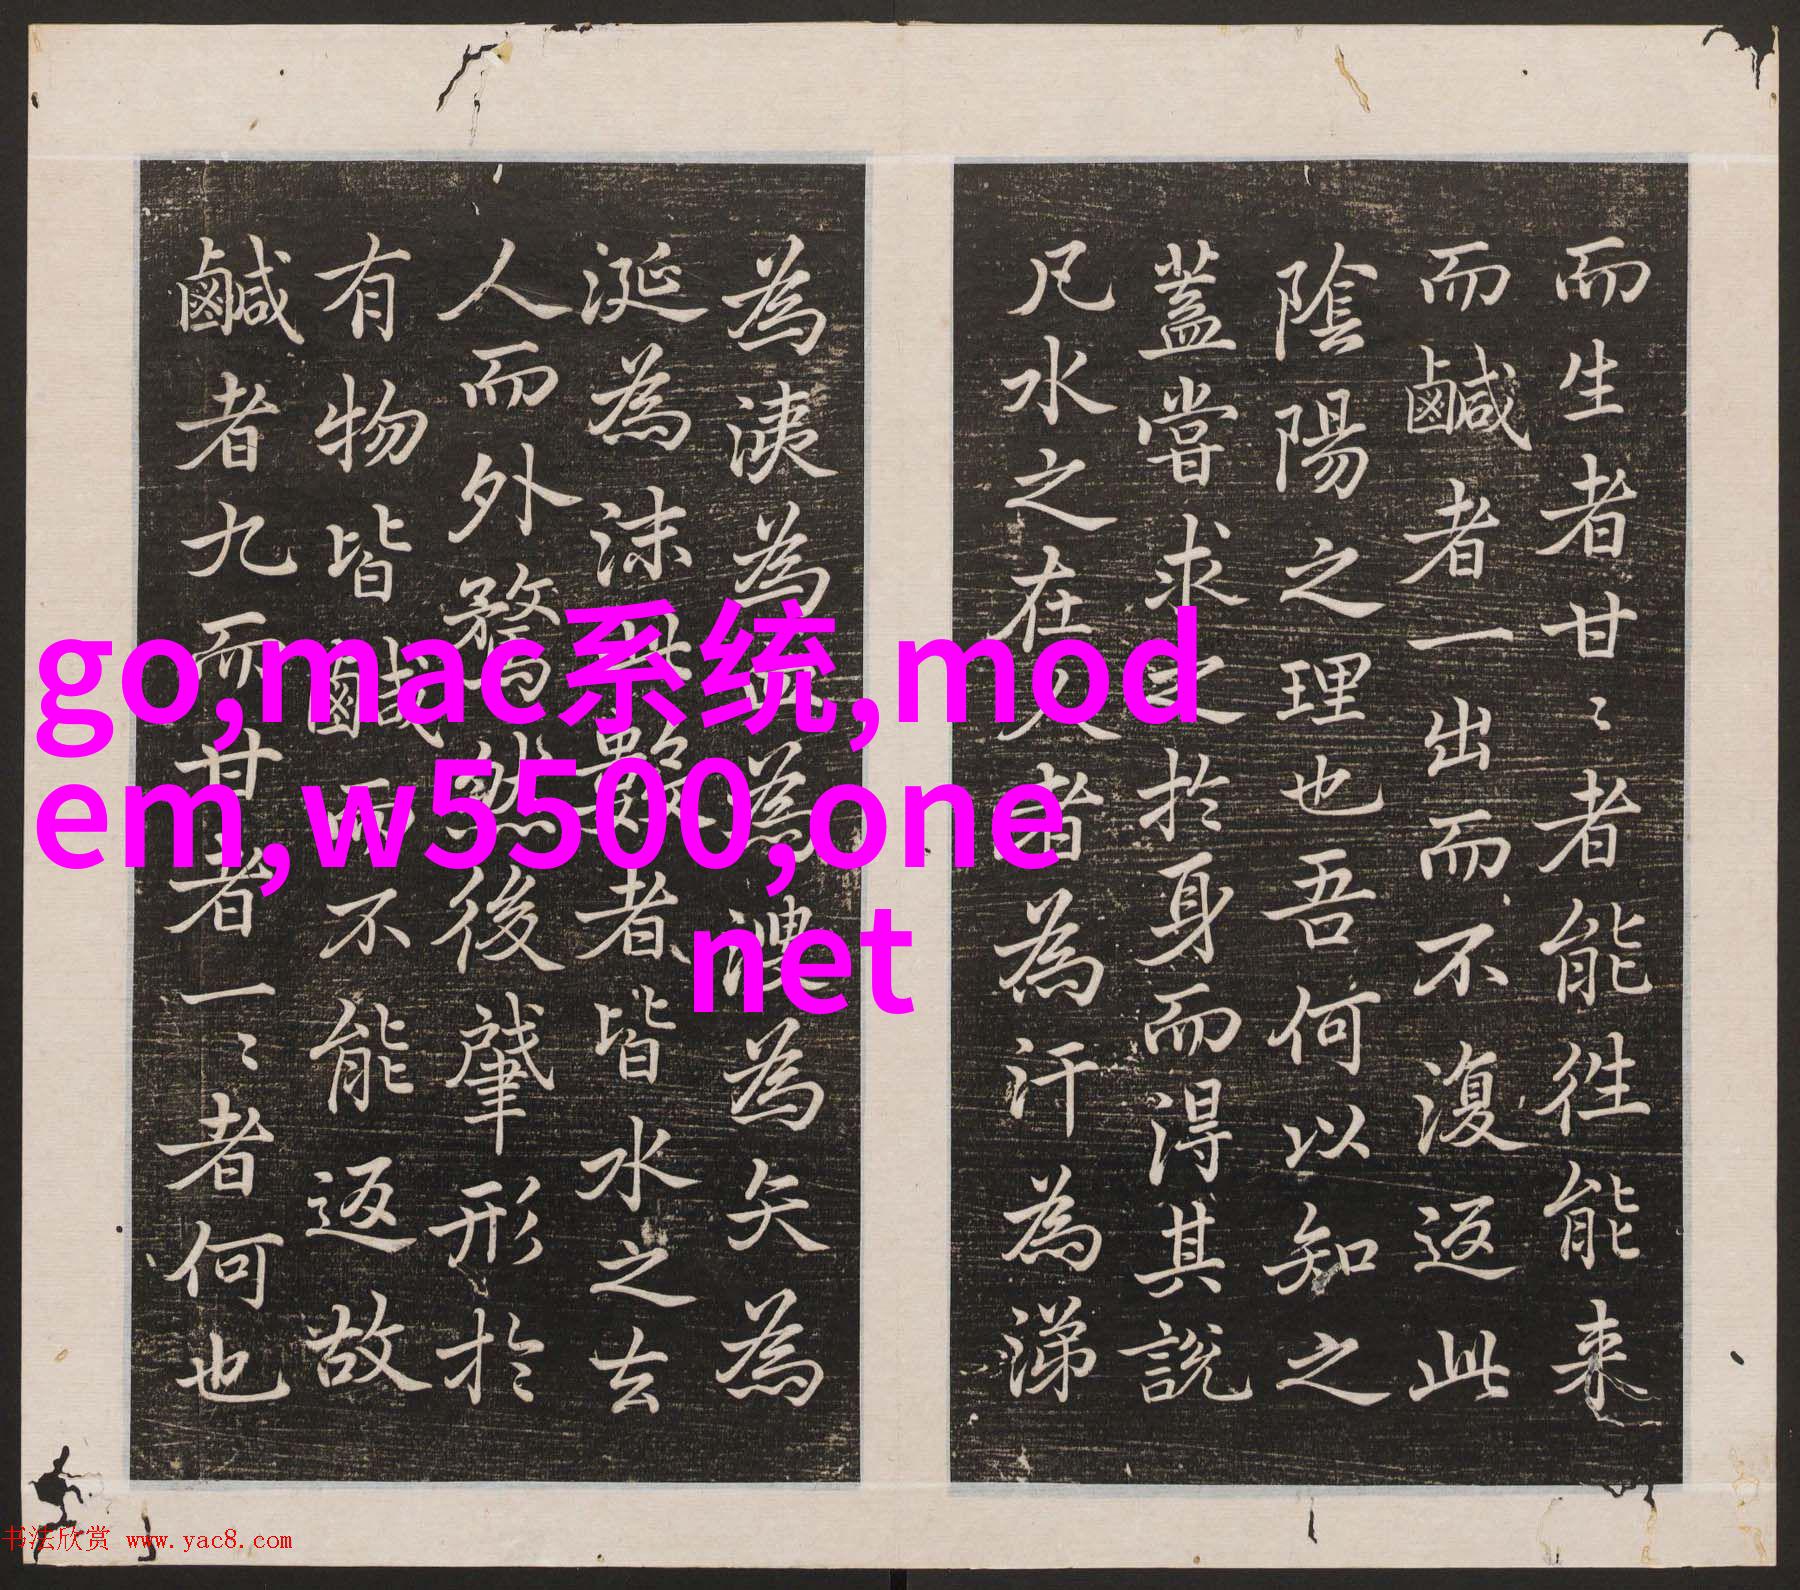 而生者甘〻者能徃能来
而鹹者一出而不復返此
陰陽之理也吾何以知之
蓋嘗求之於身而得其說
凡水之在人者為汗為涕
為洟為血為溲為矢為
涎為沫此數者皆水之去
人而外騖然後肇形於
有物皆鹹而不能返故
鹹者九而甘者一〻者何也
go,mac系统,mod
em,w5500,one
net
书法欣赏 www.yac8.com